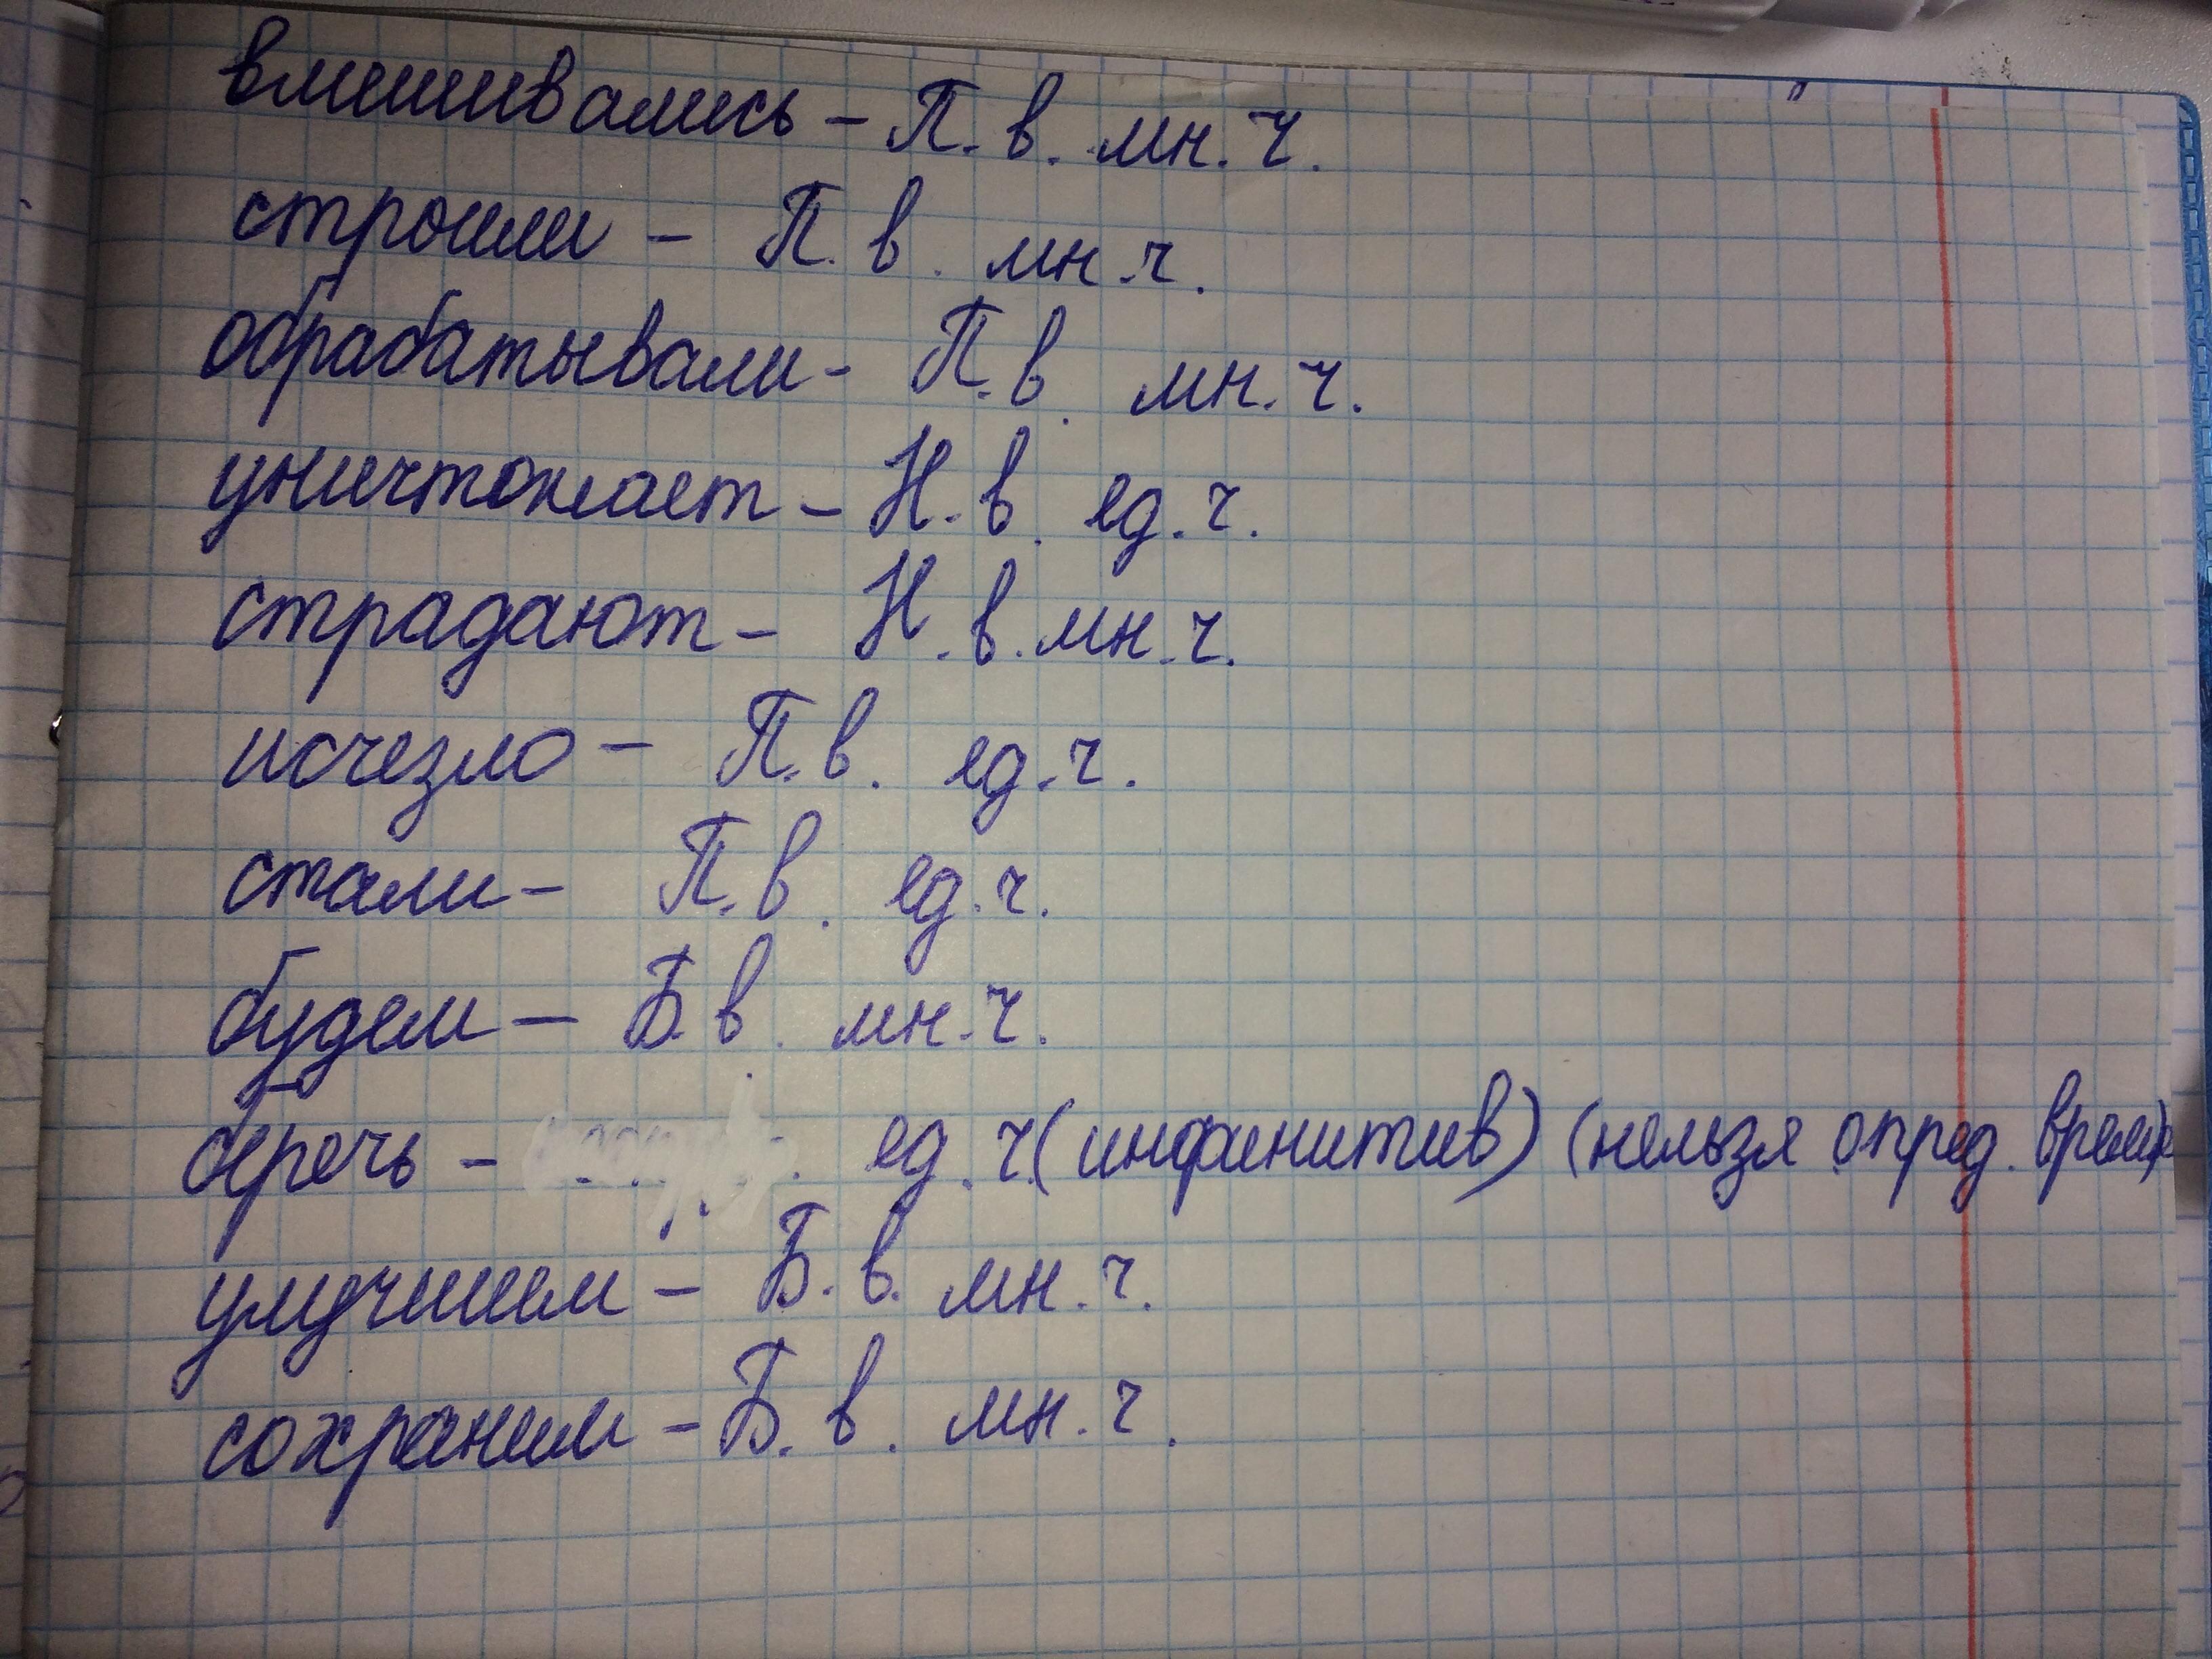 вмешивались - П.в. мн.ч.
строили - П.в. мн.ч.
обрабатывали - П.в. мн.ч.
уничтожает - Н.в. ед.ч.
страдают - Н.в. мн.ч.
исчезло - П.в. ед.ч.
стали - П.в. ед.ч.
будем - Б.в. мн.ч.
беречь - ед.ч. (инфинитив) (нельзя опред. время)
улучшим - Б.в. мн.ч.
сохраним - Б.в. мн.ч.